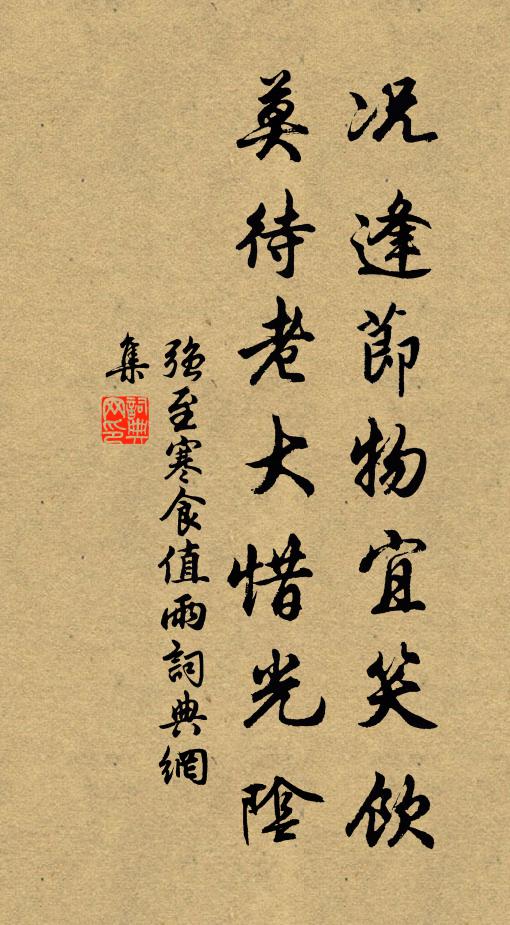 况逢節物宜笑飲
莫待老大惜光陰
強至寒食值雨詞典網
集
詞典網印